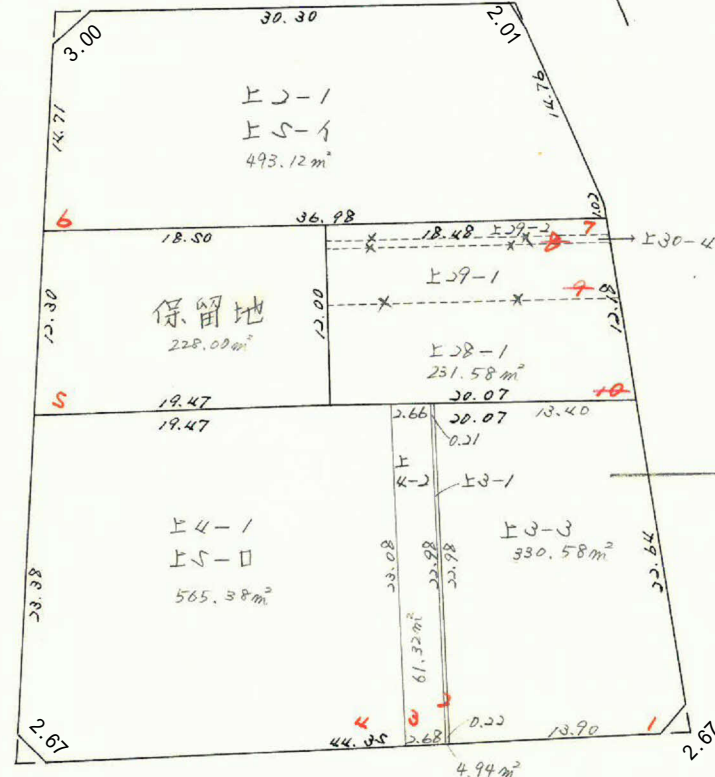 30.30
3.00
2.01
14.71
14.76
上2-1
上5-イ
493.12m²
1.02
6
36.98
7
18.50
18.48
上29-2
8
上30-4
12.30
保留地
228.00m²
12.00
上29-1
9
12.18
上28-1
231.58m²
5
19.47
20.07
10
19.47
2.66
20.07
13.40
0.21
上4-2
上3-1
上4-1
上5-ロ
565.38m²
上3-3
330.58m²
23.38
23.08
22.98
22.98
22.64
61.32m²
2
4
3
1
2.67
44.35
2.68
0.22
13.90
2.67
4.94m²